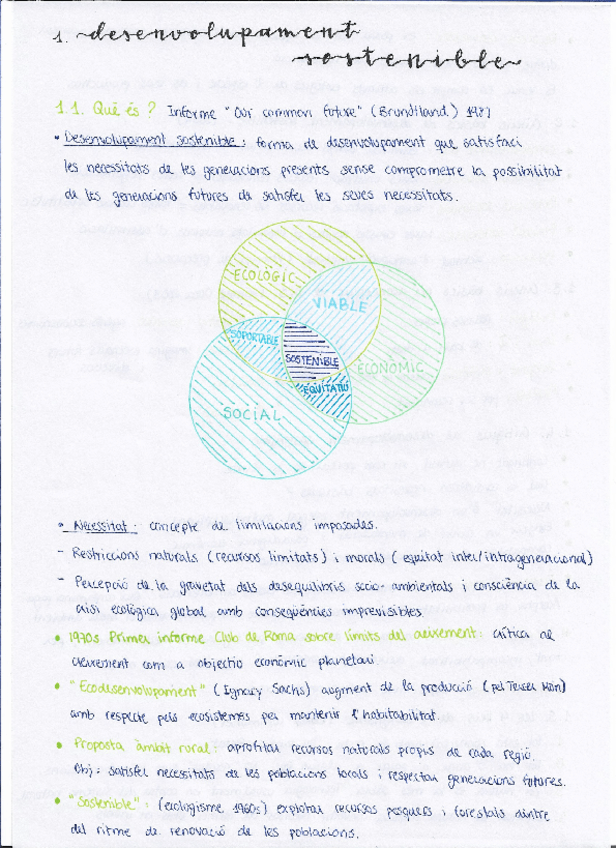 1. desenvolupament
sostenible
1.1. Què és? Informe "Our common future" (Brundtland) 1987
• Desenvolupament sostenible: forma de desenvolupament que satisfaci
les necessitats de les generacions presents sense comprometre la possibilitat
de les generacions futures de satisfer les seves necessitats.
ECOLÒGIC
VIABLE
SOPORTABLE
SOSTENIBLE
ECONOMIC
EQUITATIU
SOCIAL
• Necessitat: concepte de limitacions imposades.
- Restriccions naturals (recursos limitats) i morals (equitat inter/intrageneracional)
- Percepció de la gravetat dels desequilibris socio-ambientals i consciència de la
crisi ecològica global amb conseqüències imprevisibles.
• 1970s Primer informe Club de Roma sobre límits del creixement: crítica al
creixement com a objectiu econòmic planetari.
• "Ecodesenvolupament" (Ignacy Sachs) augment de la producció (pel Tercer Món)
amb respecte pels ecosistemes per mantenir l'habitabilitat.
• Proposta àmbit rural: aprofitar recursos naturals propis de cada regió.
Obj: satisfer necessitats de les poblacions locals i respectar generacions futures.
• "Sostenible": (ecologisme 1960s) explotar recursos pesquers i forestals dintre
del ritme de renovació de les poblacions.